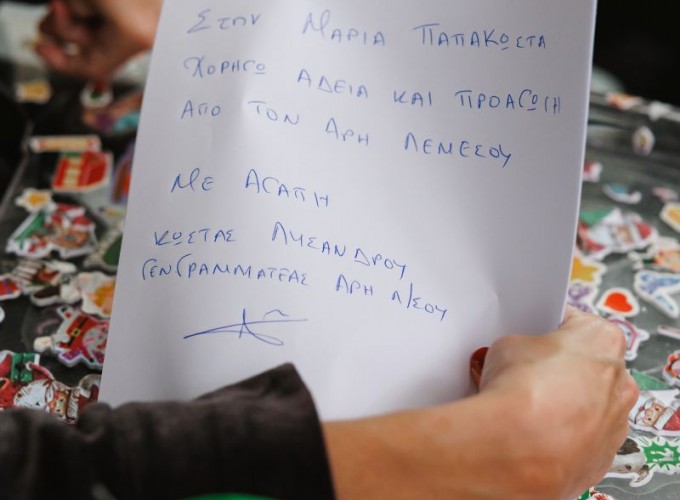 ΣΤΗΝ ΜΑΡΙΑ ΠΑΠΑΚΩΣΤΑ
ΧΟΡΗΓΩ ΑΔΕΙΑ ΚΑΙ ΠΡΟΑΓΩΓΗ
ΑΠΟ ΤΟΝ ΑΡΗ ΛΕΜΕΣΟΥ
ΜΕ ΑΓΑΠΗ
ΚΩΣΤΑΣ ΛΥΣΑΝΔΡΟΥ
ΓΕΝ ΓΡΑΜΜΑΤΕΑΣ ΑΡΗ Λ/ΣΟΥ